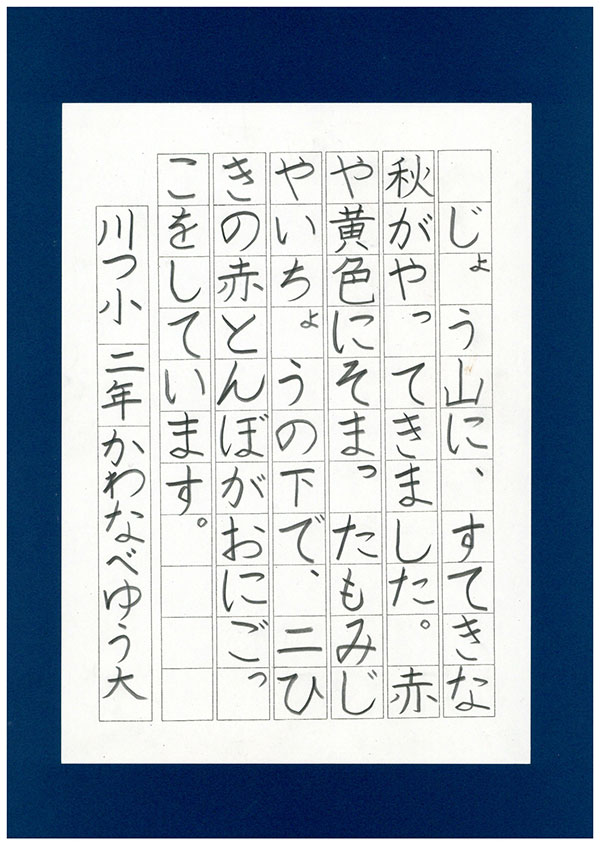 じょう山に、すてきな
秋がやってきました。赤
や黄色にそまったもみじ
やいちょうの下で、二ひ
きの赤とんぼがおにごっ
こをしています。
川つ小 二年 かわなべゆう大